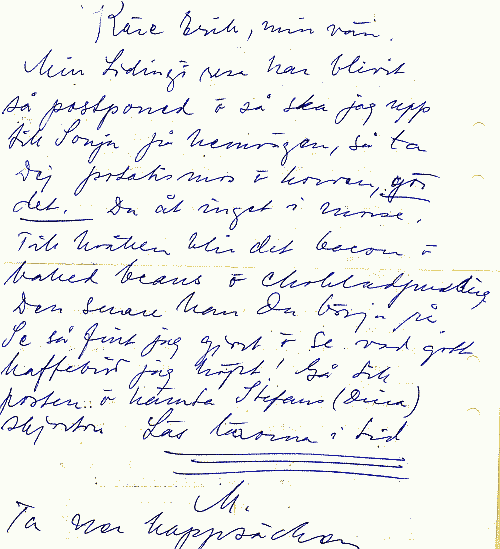 Käre Erik, min vän.
Min Lidingö resa har blivit
så postponed o så ska jag upp
till Sonja på hemvägen, så ta
Dej potatismos o korven, gör
det. Du åt inget i morse.
Till kvällen blir det bacon o
baked beans o chokladpudding
Den senare kan Du börja på
Se så fint jag gjort o se vad gott
kaffebröd jag köpt! Gå till
posten o hämta Stefans (Dina)
skjortor Lås dörrarna i tid
M.
Ta kappsäcken